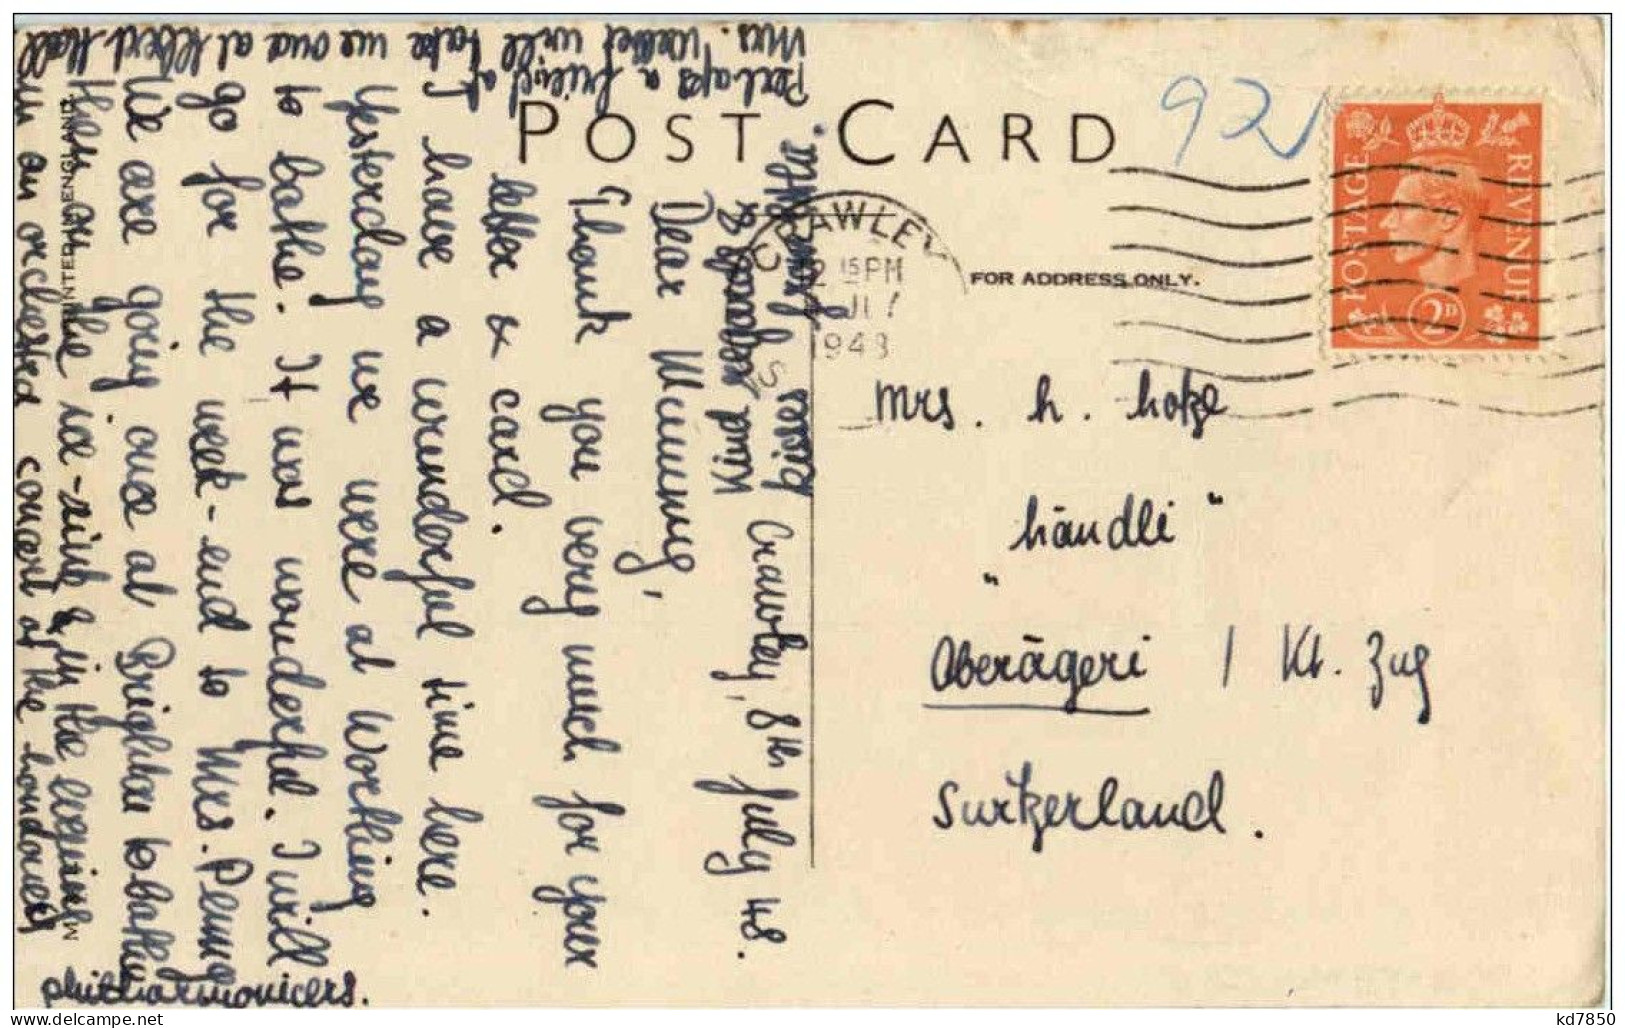 POST CARD
FOR ADDRESS ONLY.
92
POSTAGE
REVENUE
2D
CRAWLEY
12 15 PM
JLY
1948
Mrs. h. hotze
"händli"
Oberägeri / Kt. Zug
Switzerland.
Crawley, 8th July 48.
Dear Mummy,
Thank you very much for your
letter & card.
I have a wunderful time here.
Yesterday we were at Worthing
to bathe. It was wonderful. I will
go for the week-end to Mrs. Penny
We are going once at Brighton to bathe
then on the ice-rink & in the evening
in an orchestra concert of the Londoners
philharmonicers.
Perhaps a friend of
Mrs. will take me once at Albert Hall
Kisses